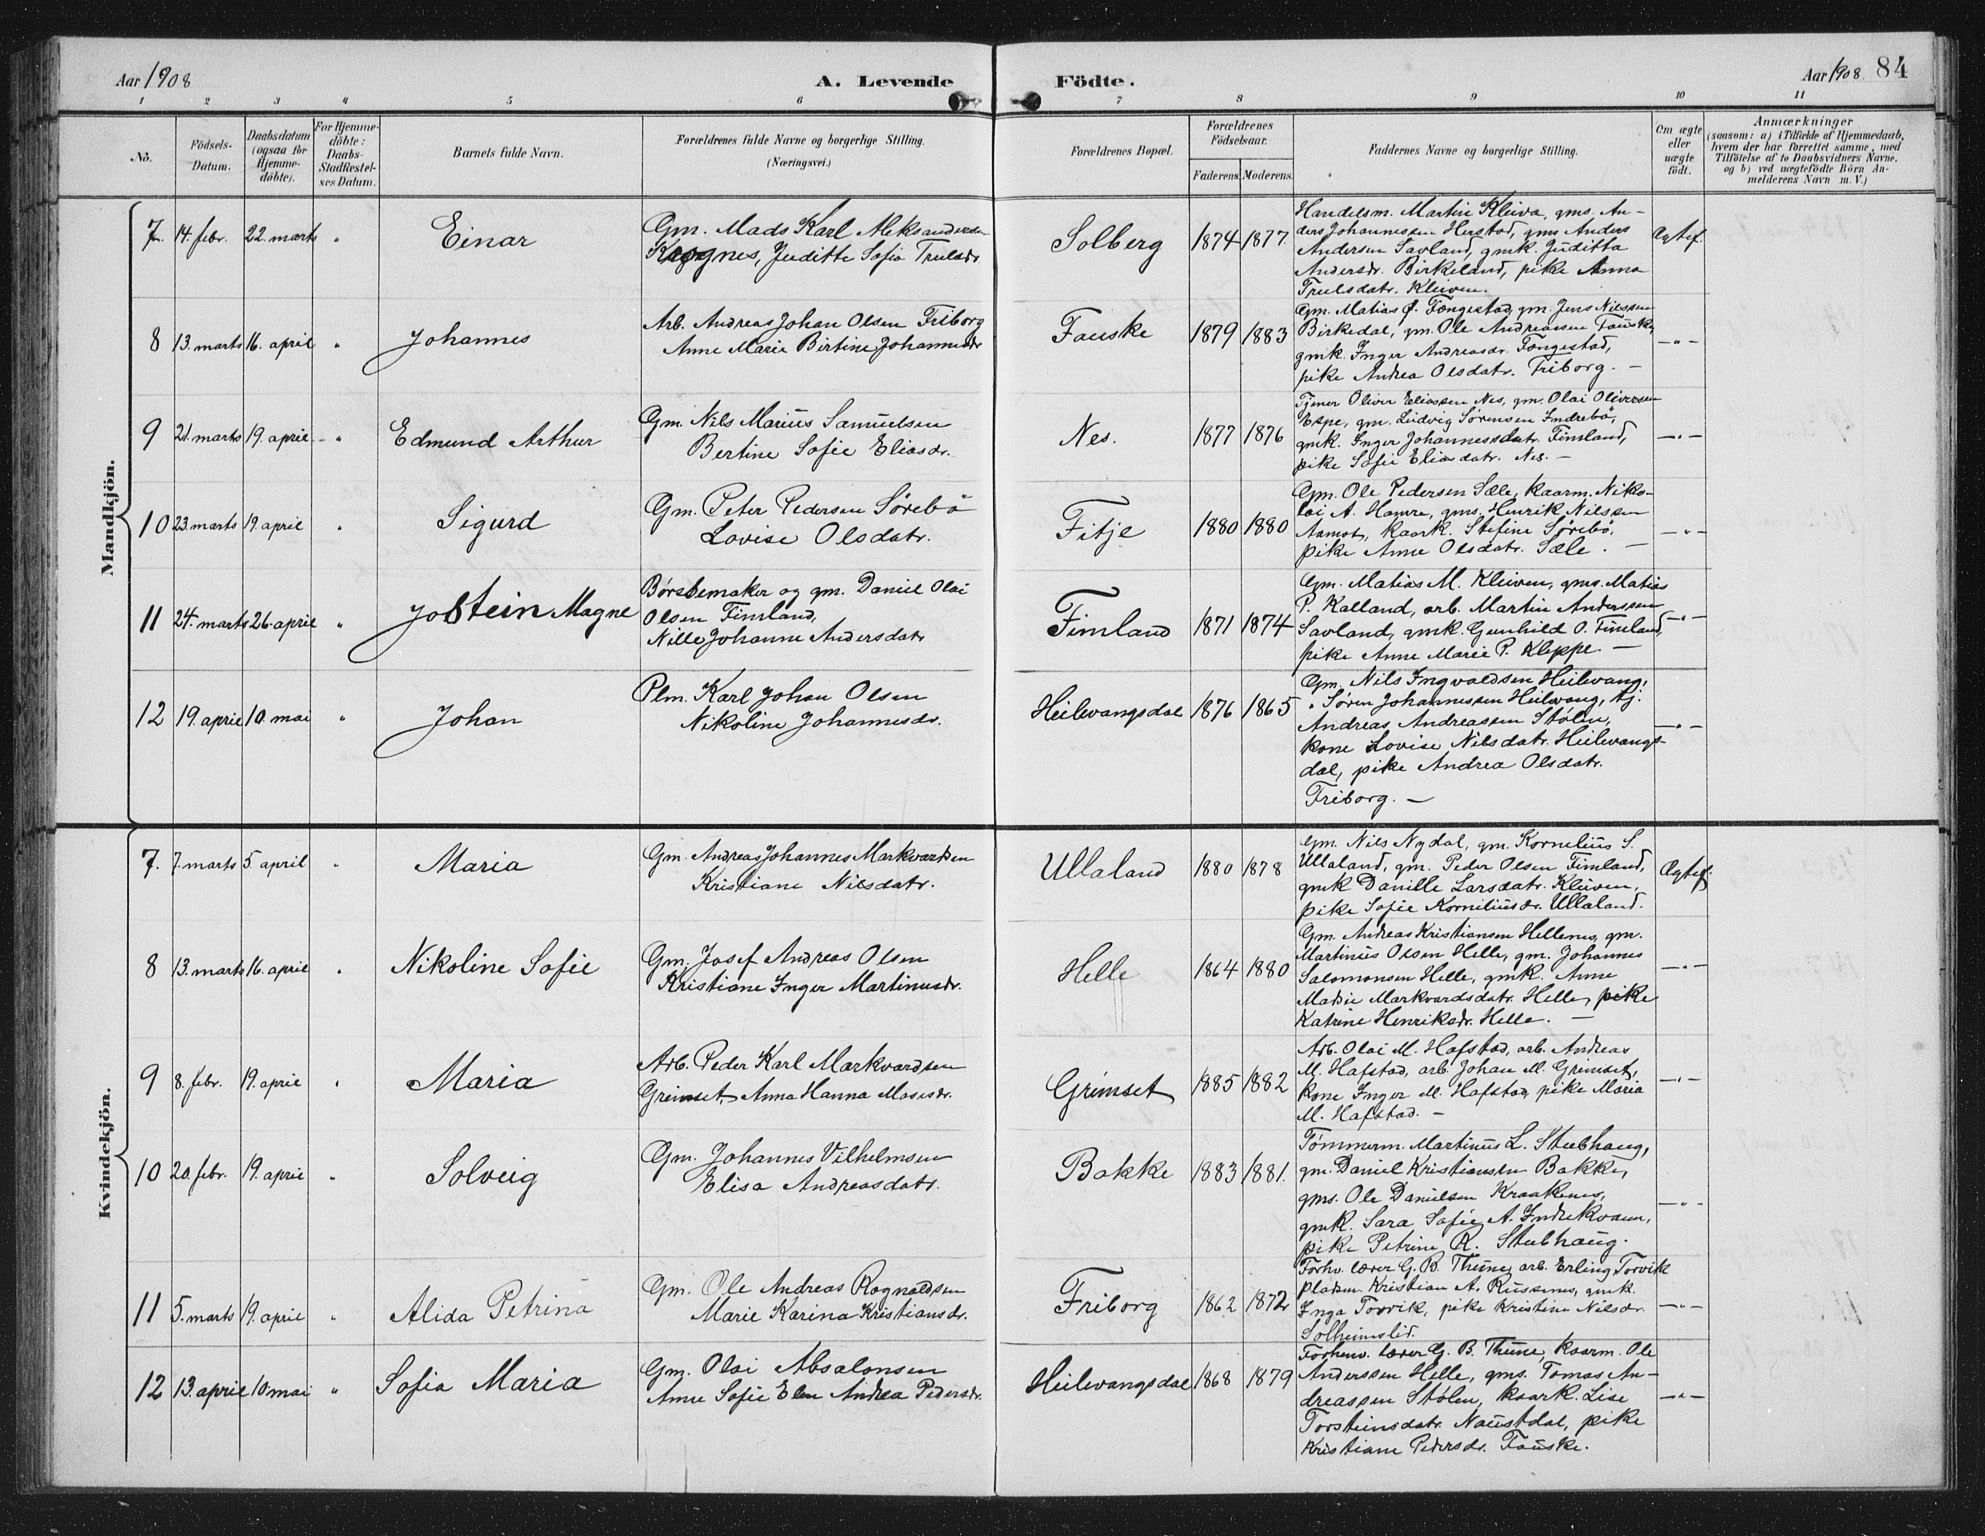 Aar 1908
A. Levende Födte.
Aar 1908. 84
1 2 3 4 5 6 7 8 9 10 11
No.
Födsels-
Datum.
Daabsdatum
(ogsaa for
Hjemme-
döbte).
For Hjemme-
döbte:
Daabs-
Stadfæstel-
ses Datum.
Barnets fulde Navn.
Forældrenes fulde Navne og borgerlige Stilling.
(Næringsvei.)
Forældrenes Bopæl.
Forældrenes
Födselsaar.
Faderens. Moderens.
Faddernes Navne og borgerlige Stilling.
Om ægte
eller
uægte
födt.
Anmærkninger
(saasom: a) i Tilfælde af Hjemmedaab,
hvem der har forrettet samme, med
Tilföielse af to Daabsvidners Navne,
og b) ved uægtefödte Börn An-
melderens Navn m. V.)
Mandkjön.
7. 14. febr. 22. marts " Einar
Gm. Mads Karl Aleksandersen
Krognes, Juditte Sofie Trulsdr.
Solberg 1874 1877
Handelsm. Martin Kleiva, gms. An-
ders Johannessen Herstad, gms Anders
Andersen Savland, gmk. Juditta
Andersdr. Birkeland, pike Anna
Trulsdatr. Kleiven.
Ægtef.
8 13. marts 16. april " Johannes
Arb. Andreas Johan Olsen Friborg
Anne Marie Birtine Johannesdr
Fauske 1879 1883
Gm. Matias Ø. Fongestad, gm. Jens Nilssen
Birkedal, gm. Ole Andreassen Fauske
gmk. Inger Andreasdr. Fongestad,
pike Andrea Olsdatr. Friborg. —
— " —
9 21. marts 19. april " Edmund Arthur
Gm. Nils Marius Samuelsen
Bertine Sofie Eliasdr.
Nes. 1877 1876
Tjener Oliver Eliassen Nes, gm. Olai Oliversen
Espe, gm. Ludvig Sørensen Indrebö,
gmk. Inger Johannessdatr. Fimland,
pike Sofie Eliasdatr. Nes. —
— " —
10 23. marts 19. april " Sigurd
Gm. Peter Pedersen Sørebö
Lovise Olsdatr.
Fitje 1880 1880
Gm. Ole Pedersen Sæle, kaarm. Niko-
lai A. Hamre, gms. Henrik Nilssen
Aamot, kaark. Stefine Sørebö,
pike Anne Olsdatr. Sæle. —
— " —
11 24. marts 26. april " Jostein Magne
Børsbemaker og gm. Daniel Olai
Olsen Fimland,
Nille Johanne Andersdatr
Fimland 1871 1874
Gm. Matias M. Kleiven, gms. Matias
P. Kalland, arb. Martin Anderssen
Savland, gmk. Gunhild O. Fimland,
pike Anne Marie P. Kleppe. —
— " —
12 19. april 10. mai " Johan
Plm. Karl Johan Olsen
Nikoline Johannesdr.
Heilevangsdal 1876 1865
Gm. Nils Ingvaldsen Heilevang,
" Søren Johannessen Heilevang, tj.
Andreas Andreassen Stølen,
kone Lovise Nilsdatr. Heilevangs-
dal, pike Andrea Olsdatr.
Friborg. —
— " —
Kvindekjön.
7. 7. marts 5. april " Maria
Gm. Andreas Johannes Markvardsen
Kristiane Nilsdatr.
Ullaland 1880 1878
Gm. Nils Nydal, gm. Kornelius S.
Ullaland, gm. Peder Olsen Fimland,
gmk Danille Larsdatr. Kleiven,
pike Sofie Korneliusdr. Ullaland.
Ægtef.
8 13. marts 16. april " Nikoline Sofie
Gm. Josef Andreas Olsen
Kristiane Inger Martinusdr.
Helle 1864 1880
Gm. Andreas Kristiansen Hellenes, gm.
Martinus Olsen Helle, gm. Johannes
Salomonsen Helle, gmk. Anne
Matsie Markvardsdatr. Helle, pike
Katrine Henriksdr. Helle. —
— " —
9 8. febr. 19. april " Maria
Arb. Peder Karl Markvardsen
Grimset, Anna Hanna Mosesdr.
Grimset 1885 1882
Arb. Olai M. Hafstad, arb. Andreas
M. Hafstad, arb. Johan M. Grimset,
kone Inger M. Hafstad, pike Maria
M. Hafstad. —
— " —
10 20. febr. 19. april " Solveig
Gm. Johannes Vilhelmsen
Elisa Andreasdatr.
Bakke 1883 1881.
Tømmerm. Martinus L. Stubhaug,
gm. Daniel Kristiansen Bakke,
gms. Ole Danielsen Kraakenes,
gmk. Sara Sofie A. Indrekvam,
pike Petrine R. Stubhaug.
— " —
11 5. marts 19. april " Alida Petrina
Gm. Ole Andreas Rognaldsen
Marie Karina Kristiansdr.
Friborg 1862 1872
Forhv. lærer G. B. Thune, arb. Erling Torvik
pladsm Kristian A. Russenes, gmk.
Inga Torvik, pike Kristine Nilsdr.
Solheimslid.
— " —
12 13. april 10 mai " Sofia Maria
Gm. Olai Absalonsen
Anne Sofie Elen Andrea Pedersdr.
Heilevangsdal 1868 1879
Forhenv. lærer G. B. Thune, kaarm. Ole
Anderssen Helle, gms. Tomas An-
dreassen Stølen, kaark. Lise
Torsteinsdatr. Naustdal, pike
Kristiane Pedersdr. Fauske.
— " —